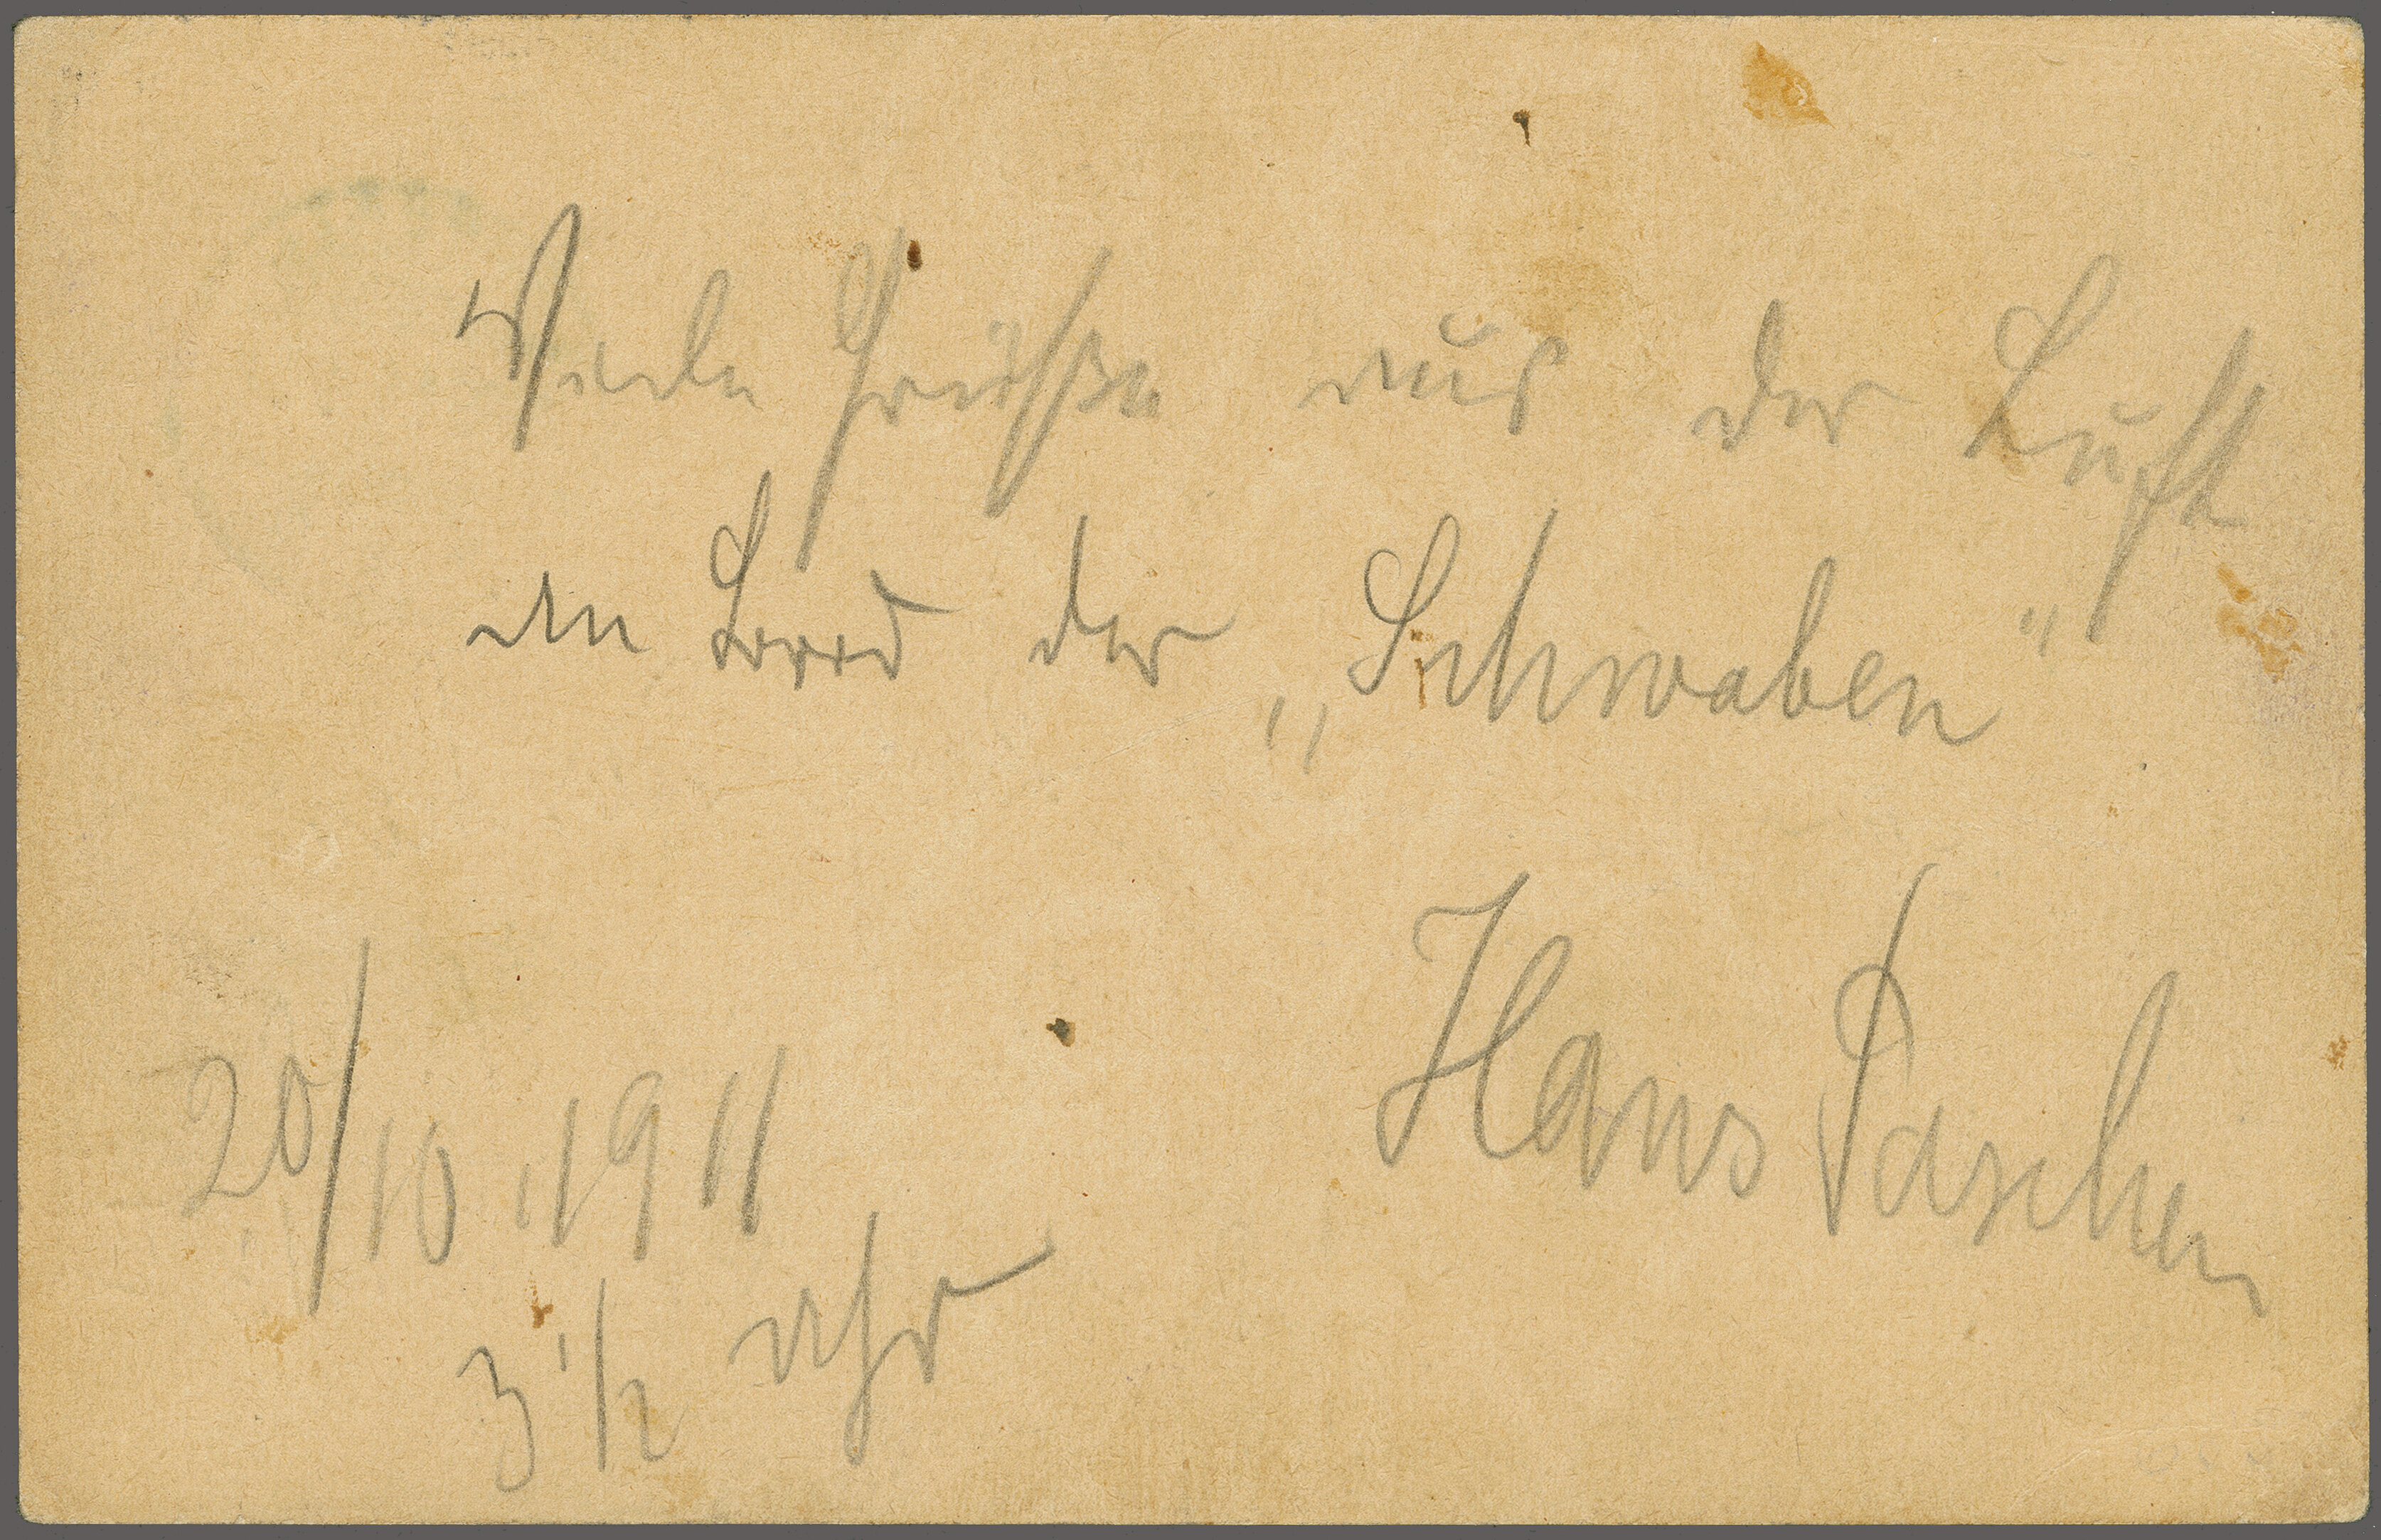 Viele Grüße aus der Luft
an Bord der „Schwaben"
Hans Paschen
20/10. 1911
3 1/2 Uhr